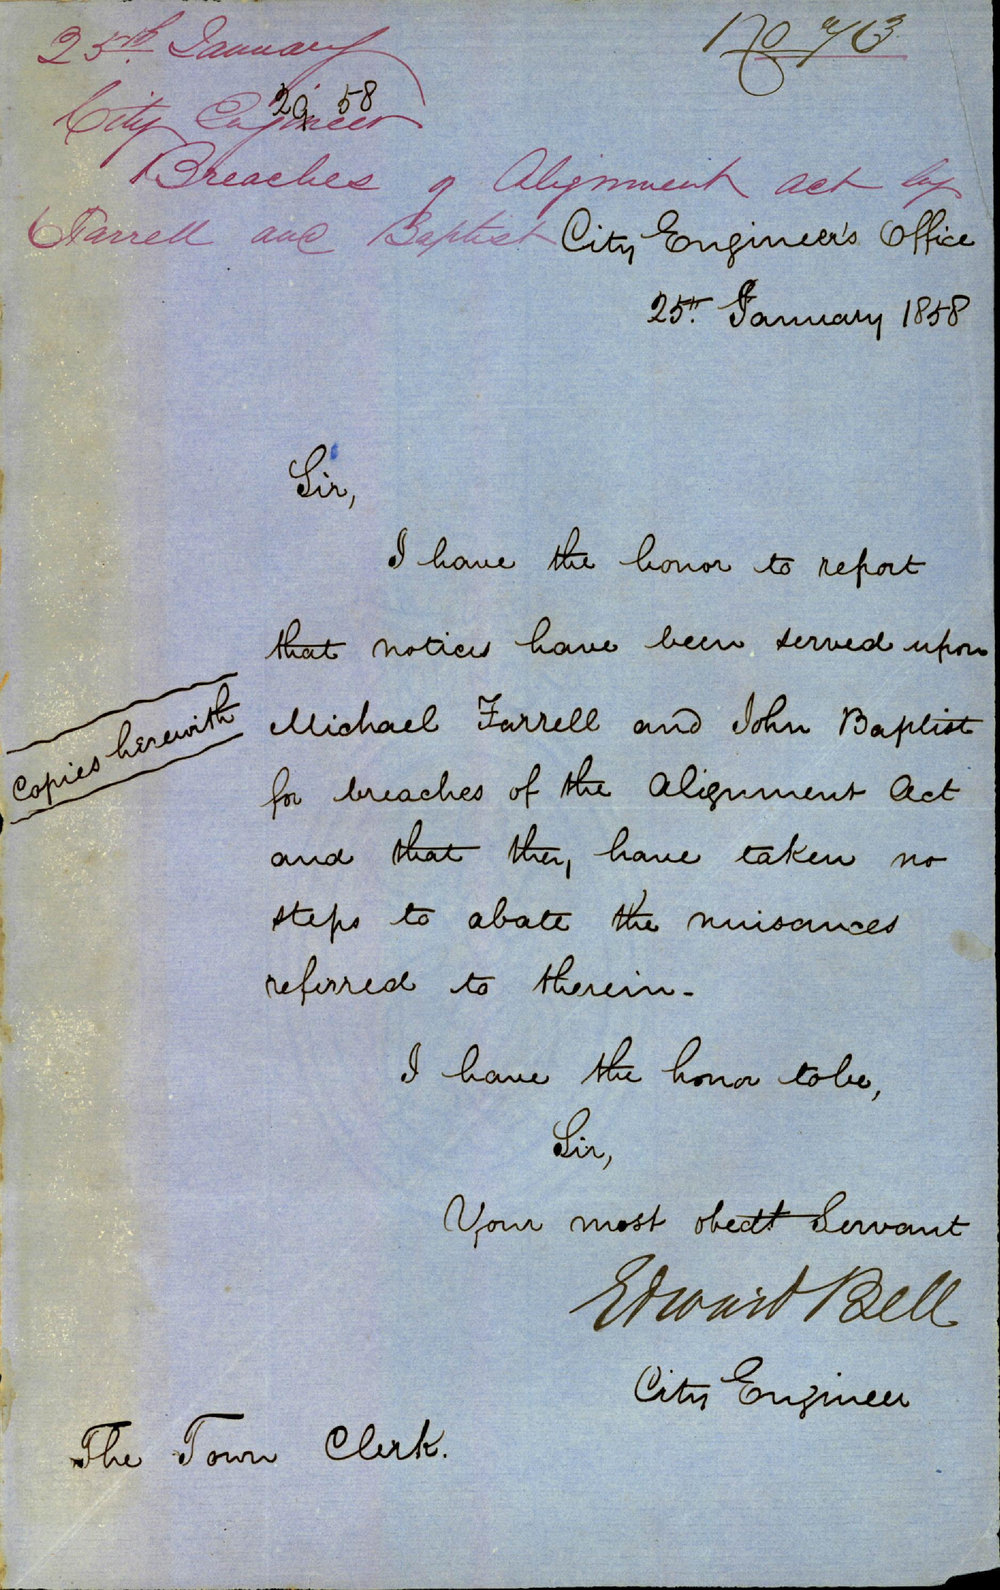 25th January
City Engineer
29 58
Breaches of Alignment act by
Farrell and Baptist
City Engineer's Office
25th January 1858
Sir,
I have the honor to report
that notices have been served upon
Copies herewith
Michael Farrell and John Baptist
for breaches of the Alignment Act
and that they have taken no
steps to abate the nuisances
referred to therein -
I have the honor to be,
Sir,
Your most obedt Servant
Edward Bell
City Engineer
The Town Clerk.